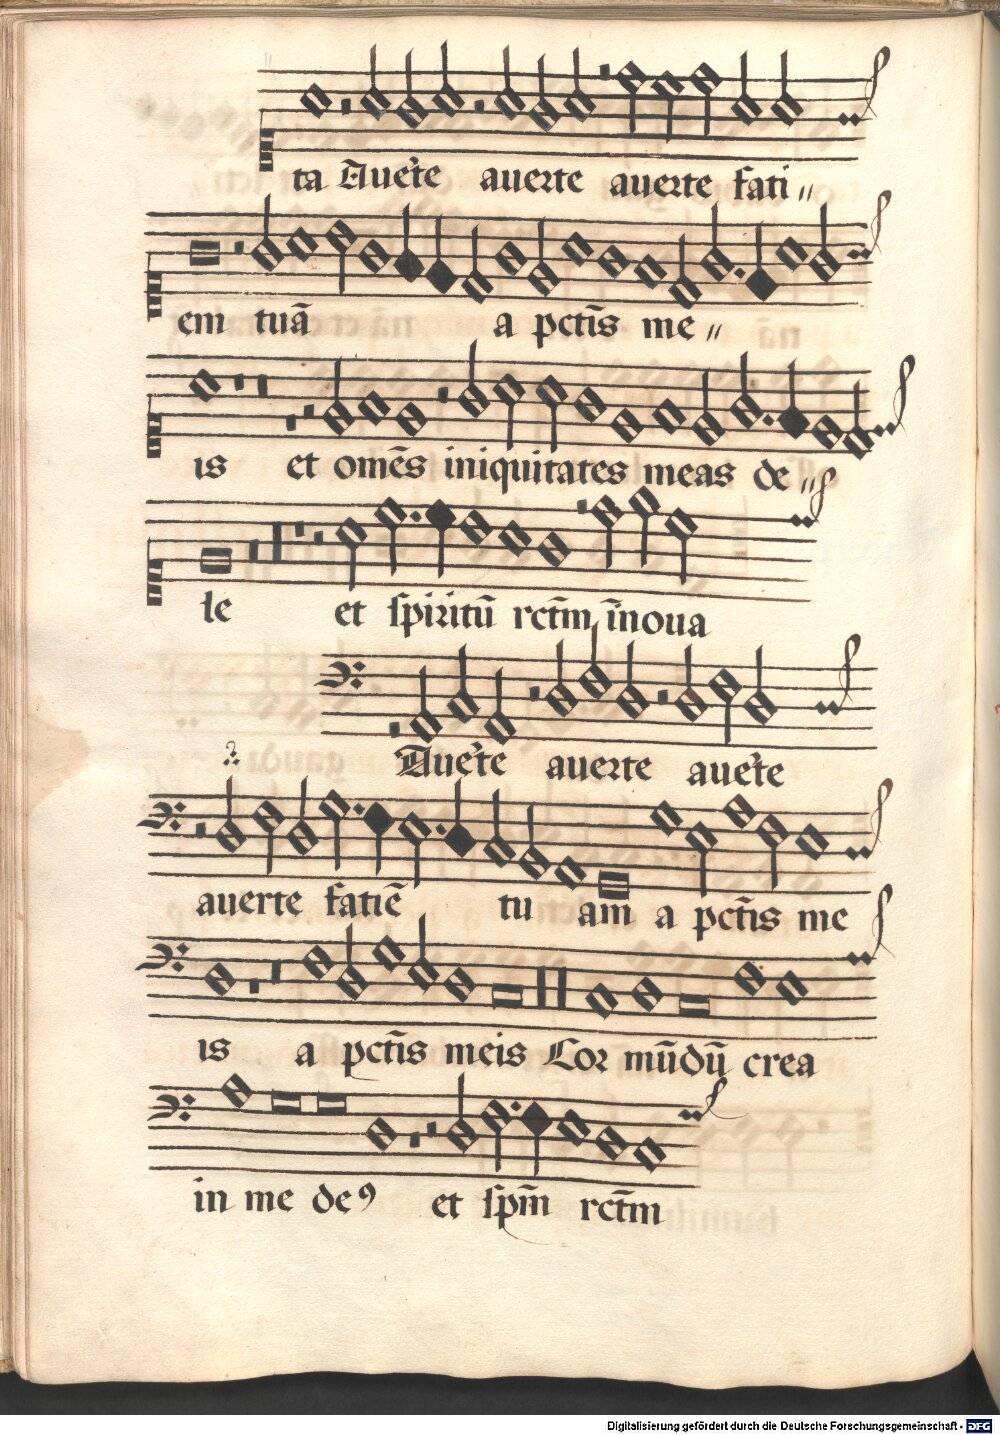 ta Aue᷑te auerte auerte fati〃
em tuā a pctīs me〃
is et omēs iniquitates meas de〃
le et spiritū rctm̄ īnoua
Aue᷑te auerte aue᷑te
auerte fatiē tu am a pctīs me
is a pctīs meis Cor mūdū crea
in me deꝰ et spm̄ rctm̄
Digitalisierung gefördert durch die Deutsche Forschungsgemeinschaft - DFG